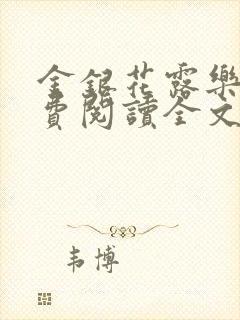 金銀花露樂
費閱讀全文
韦博